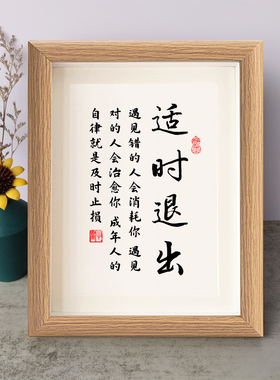 适时退出
遇见错的人会消耗你 遇见
对的人会治愈你 成年人的
自律就是及时止损